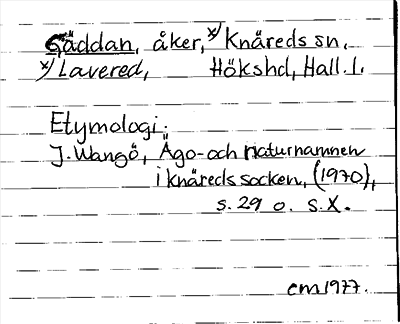 Gäddan, åker, x/ Knäreds sn,
x/ Lavered, Hökshd, Hall. l.
Etymologi:
J. Wangö, Ägo- och naturnamnen
i Knäreds socken, (1970),
s. 29 o. s. X.
cm 1977.